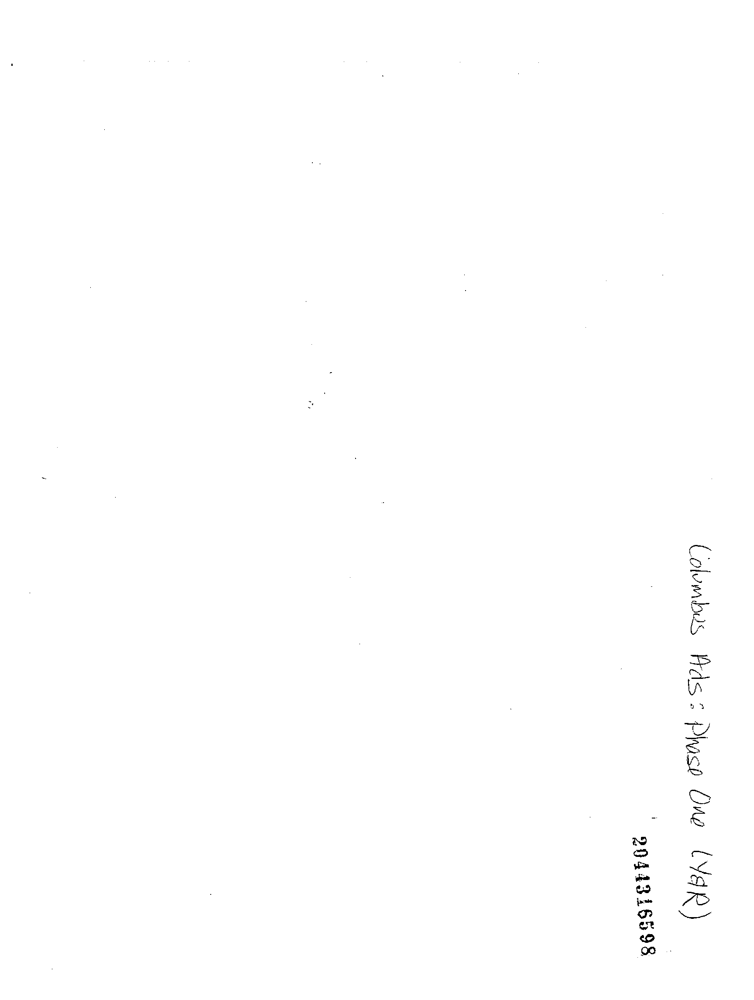 Columbus Ads: Phase One (Y&R)
2044316598